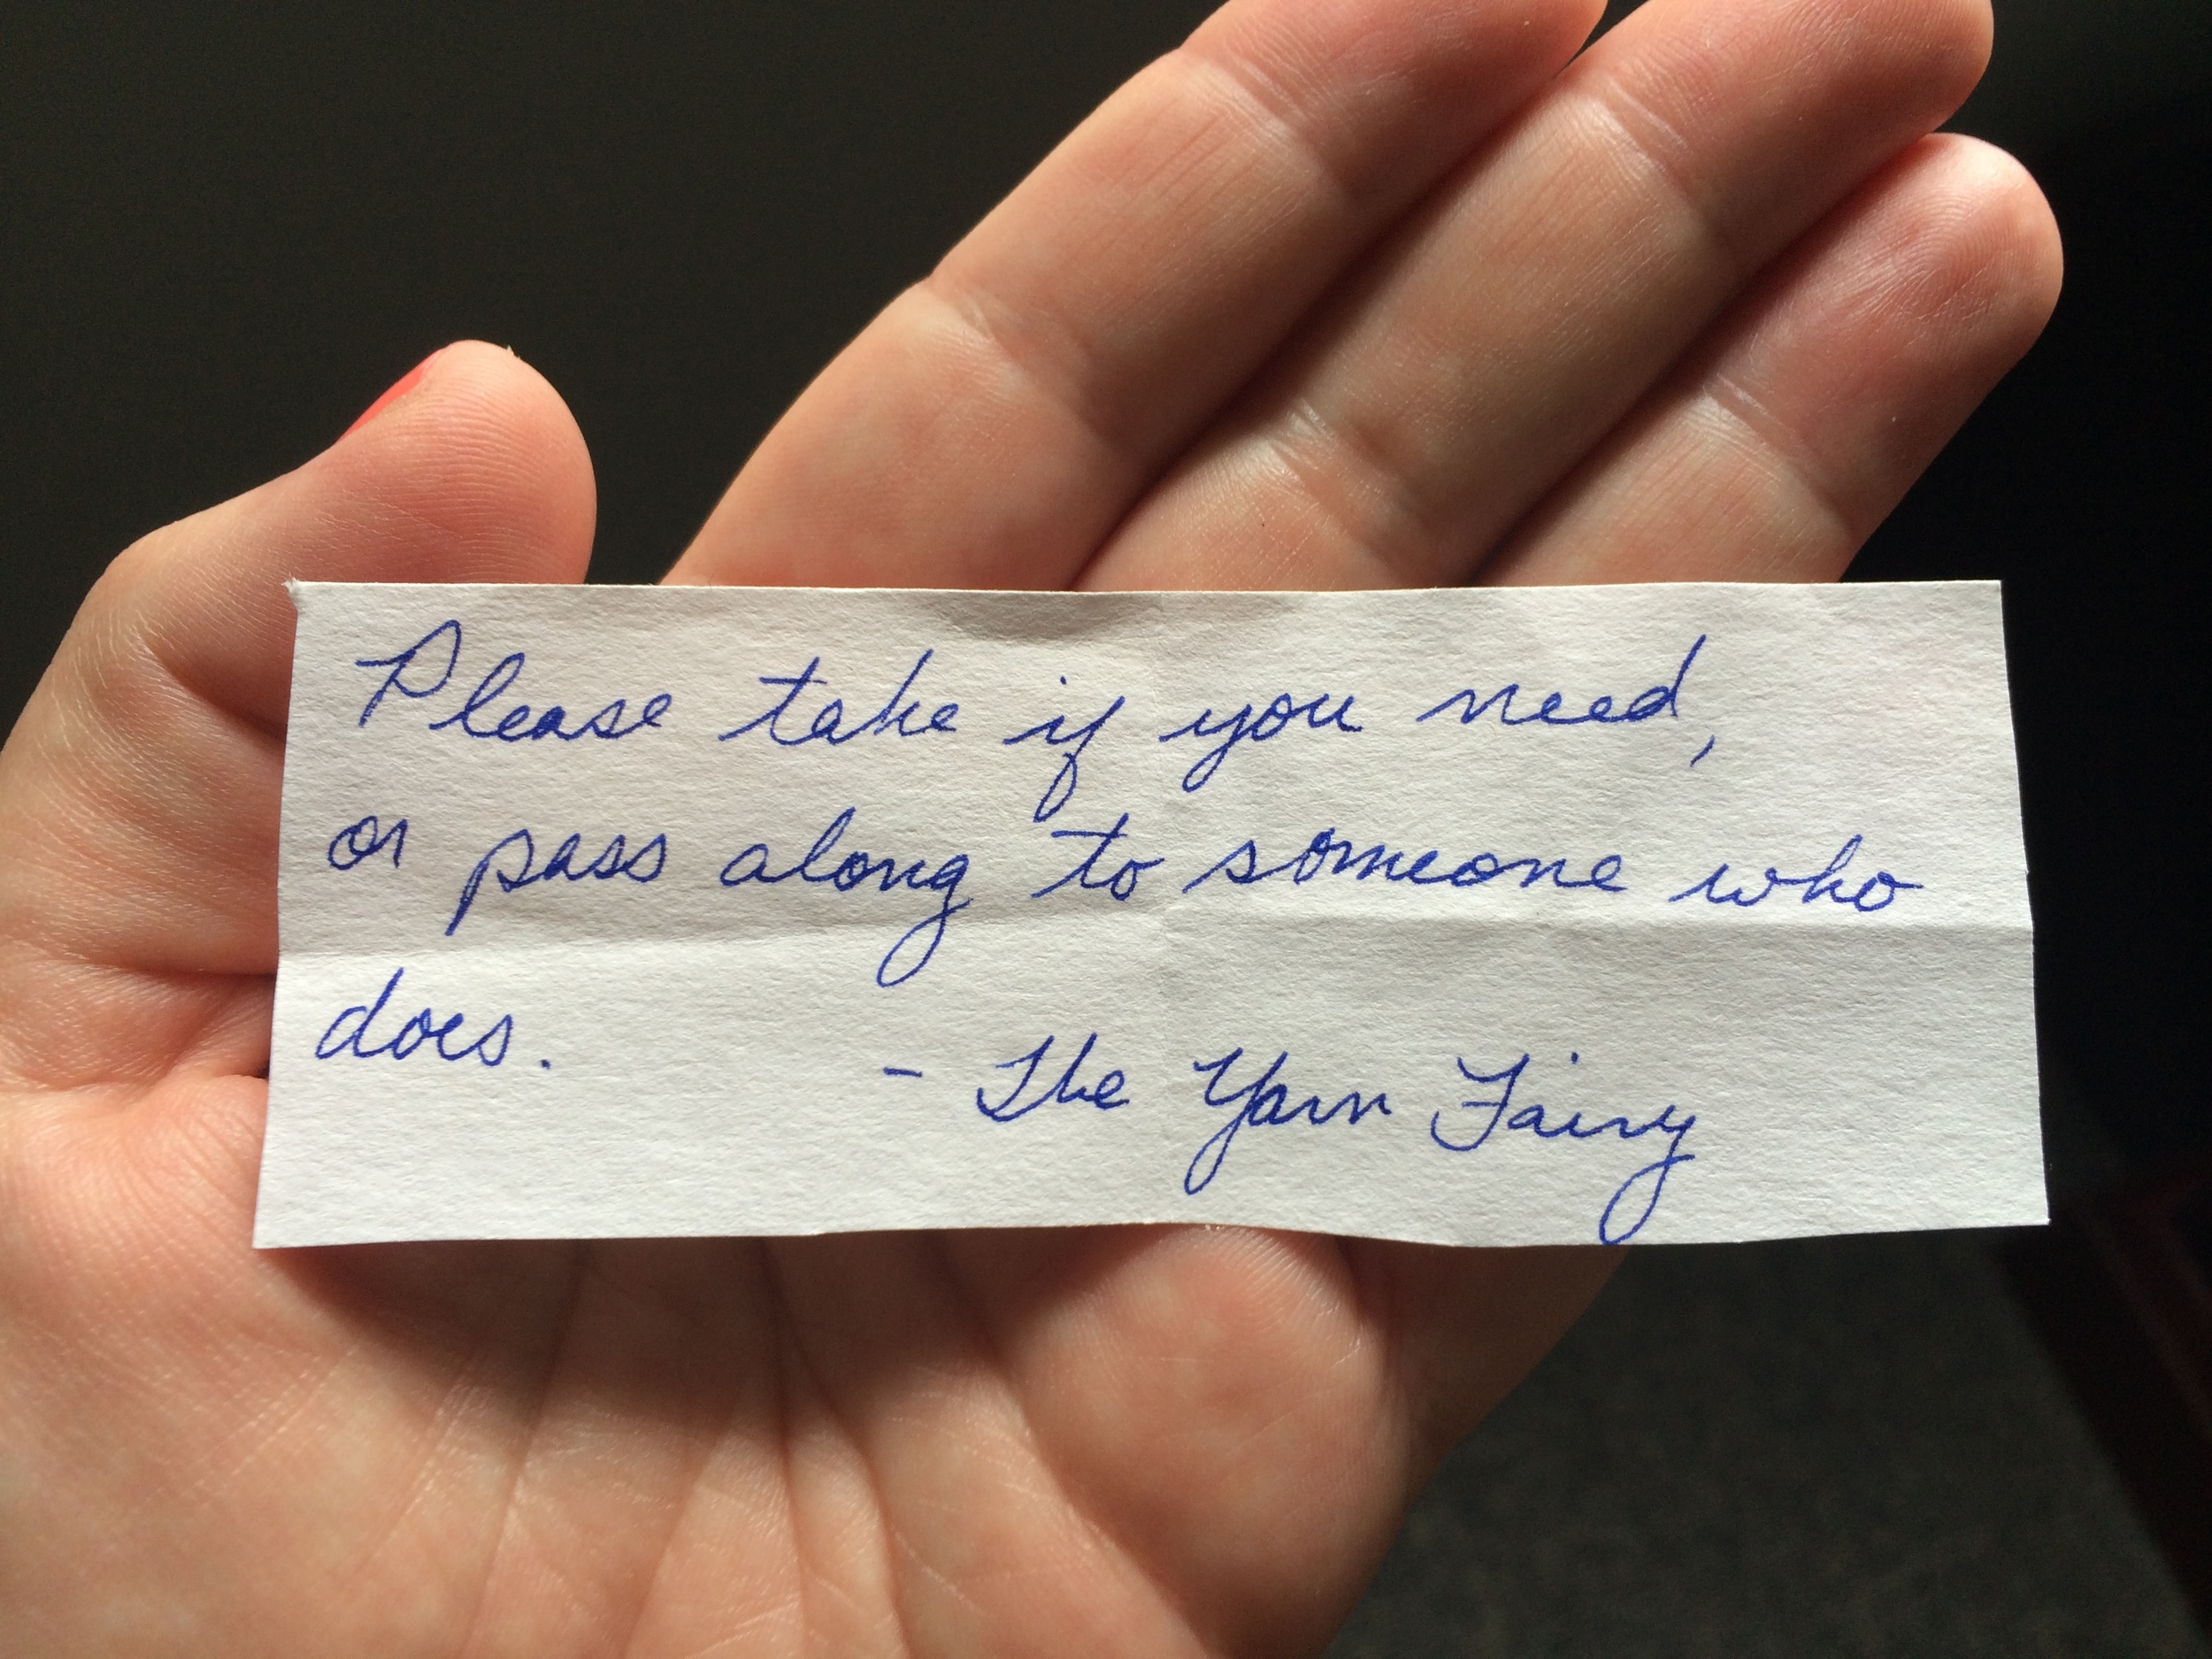 Please take if you need,
or pass along to someone who
does. - The Yarn Fairy